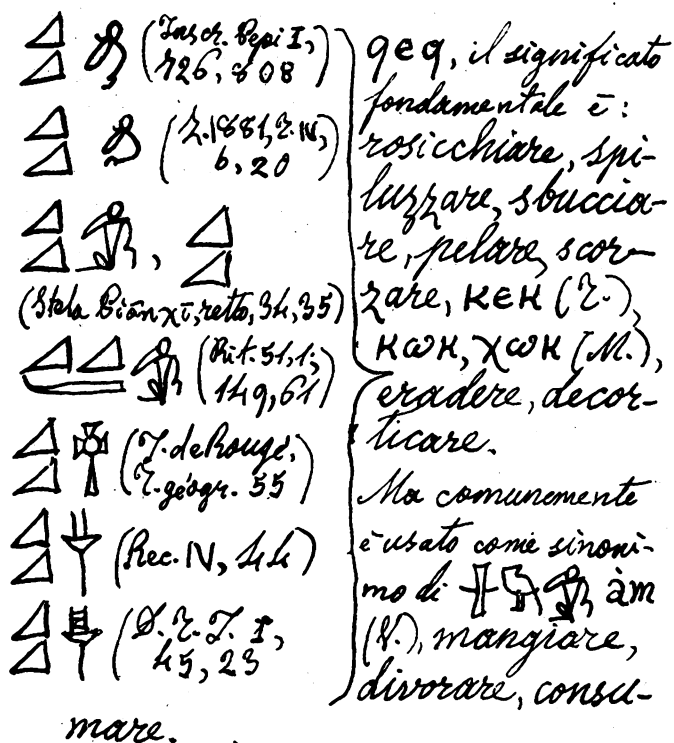 𓈎𓈎𓀁 (Inscr. Pepi I,
726, 808
𓈎𓈎𓀁 (Z. 1881, T. IV,
6, 20
𓈎𓈎𓀁, 𓈎𓈎
(Stela Biānχī, retto, 34, 35)
𓈎𓈎𓀁 (Rit. 51, 1;
149, 61
𓈎𓈎 (J. de Rougé,
T. géogr. 55
𓈎𓈎 (Rec. IV, 44)
𓈎𓈎 (D. T. I. I,
45, 23
qeq, il significato
fondamentale ē:
rosicchiare, spi-
luzzare, sbuccia-
re, pelare, scor-
zare, ⲕⲉⲕ (T.),
ⲕⲱⲕ, ⲭⲱⲕ (M.),
eradere, decor-
ticare.
Ma comunemente
è usato come sinoni-
mo di 𓀁 àm
(V.), mangiare,
divorare, consu-
mare.